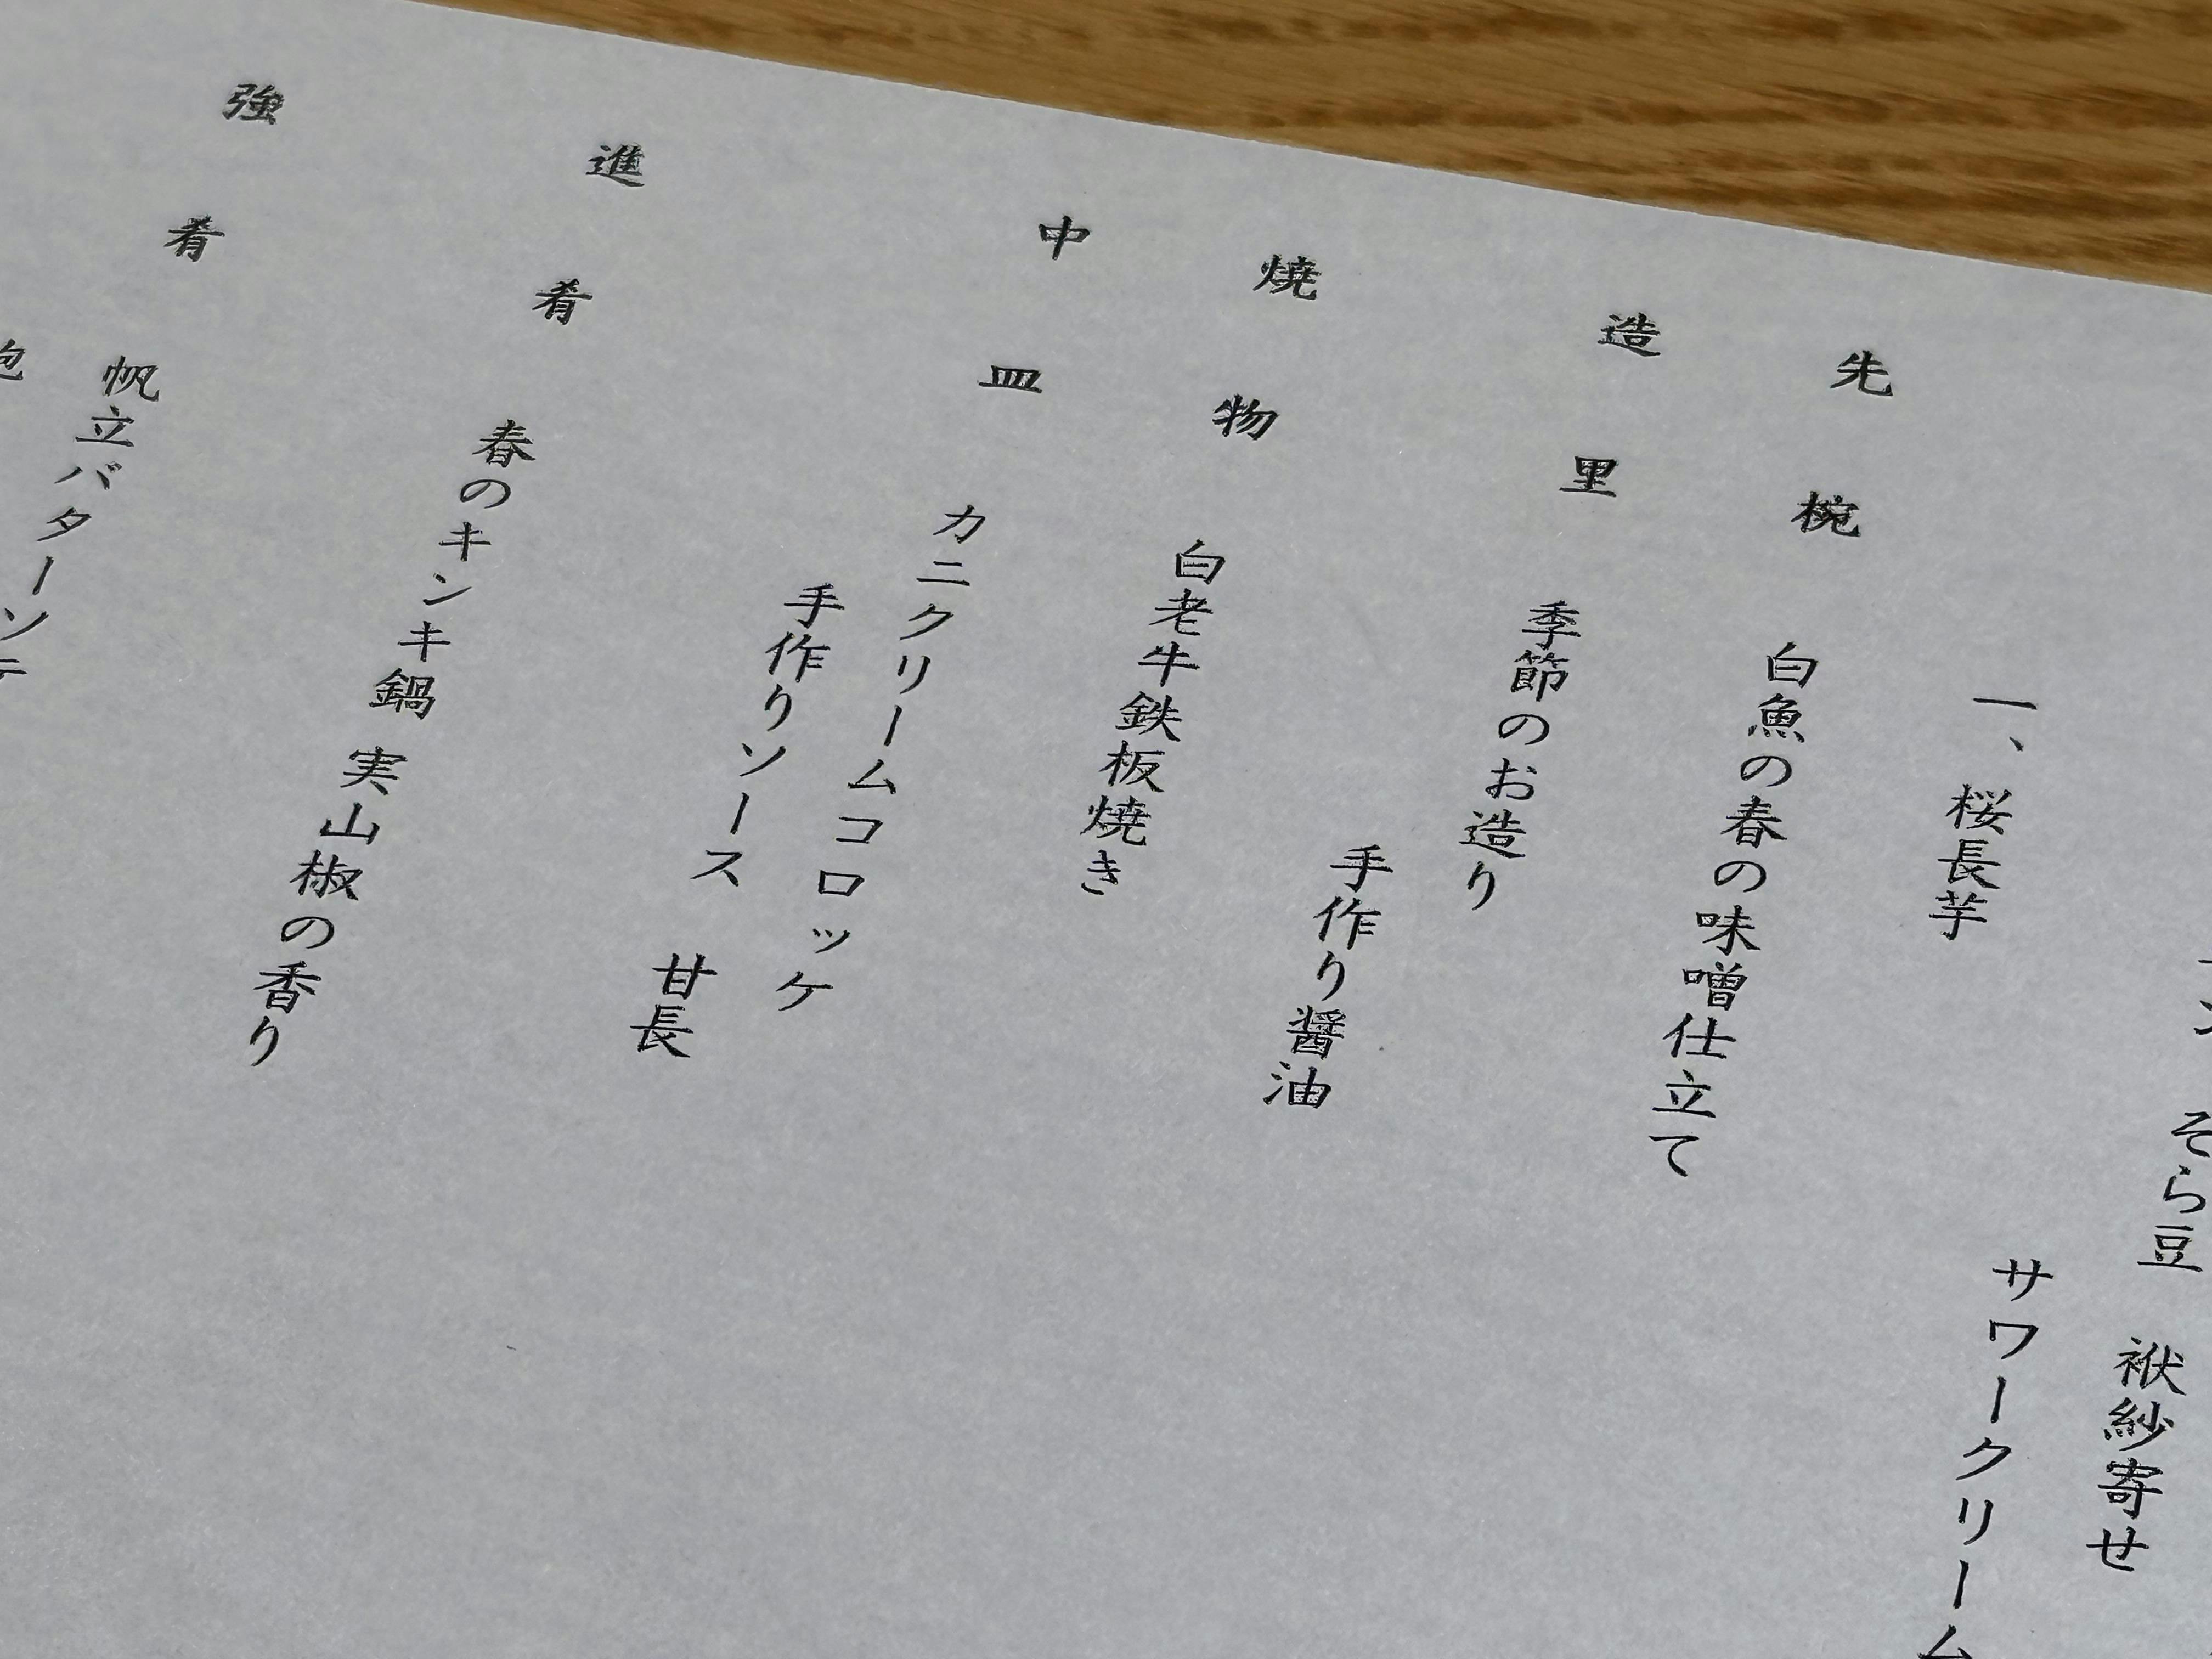 そら豆　袱紗寄せ
一、桜長芋　サワークリーム
先椀　白魚の春の味噌仕立て
造里　季節のお造り
手作り醤油
焼物　白老牛鉄板焼き
中皿　カニクリームコロッケ
手作りソース　甘長
進肴　春のキンキ鍋　実山椒の香り
強肴　帆立バターソテ